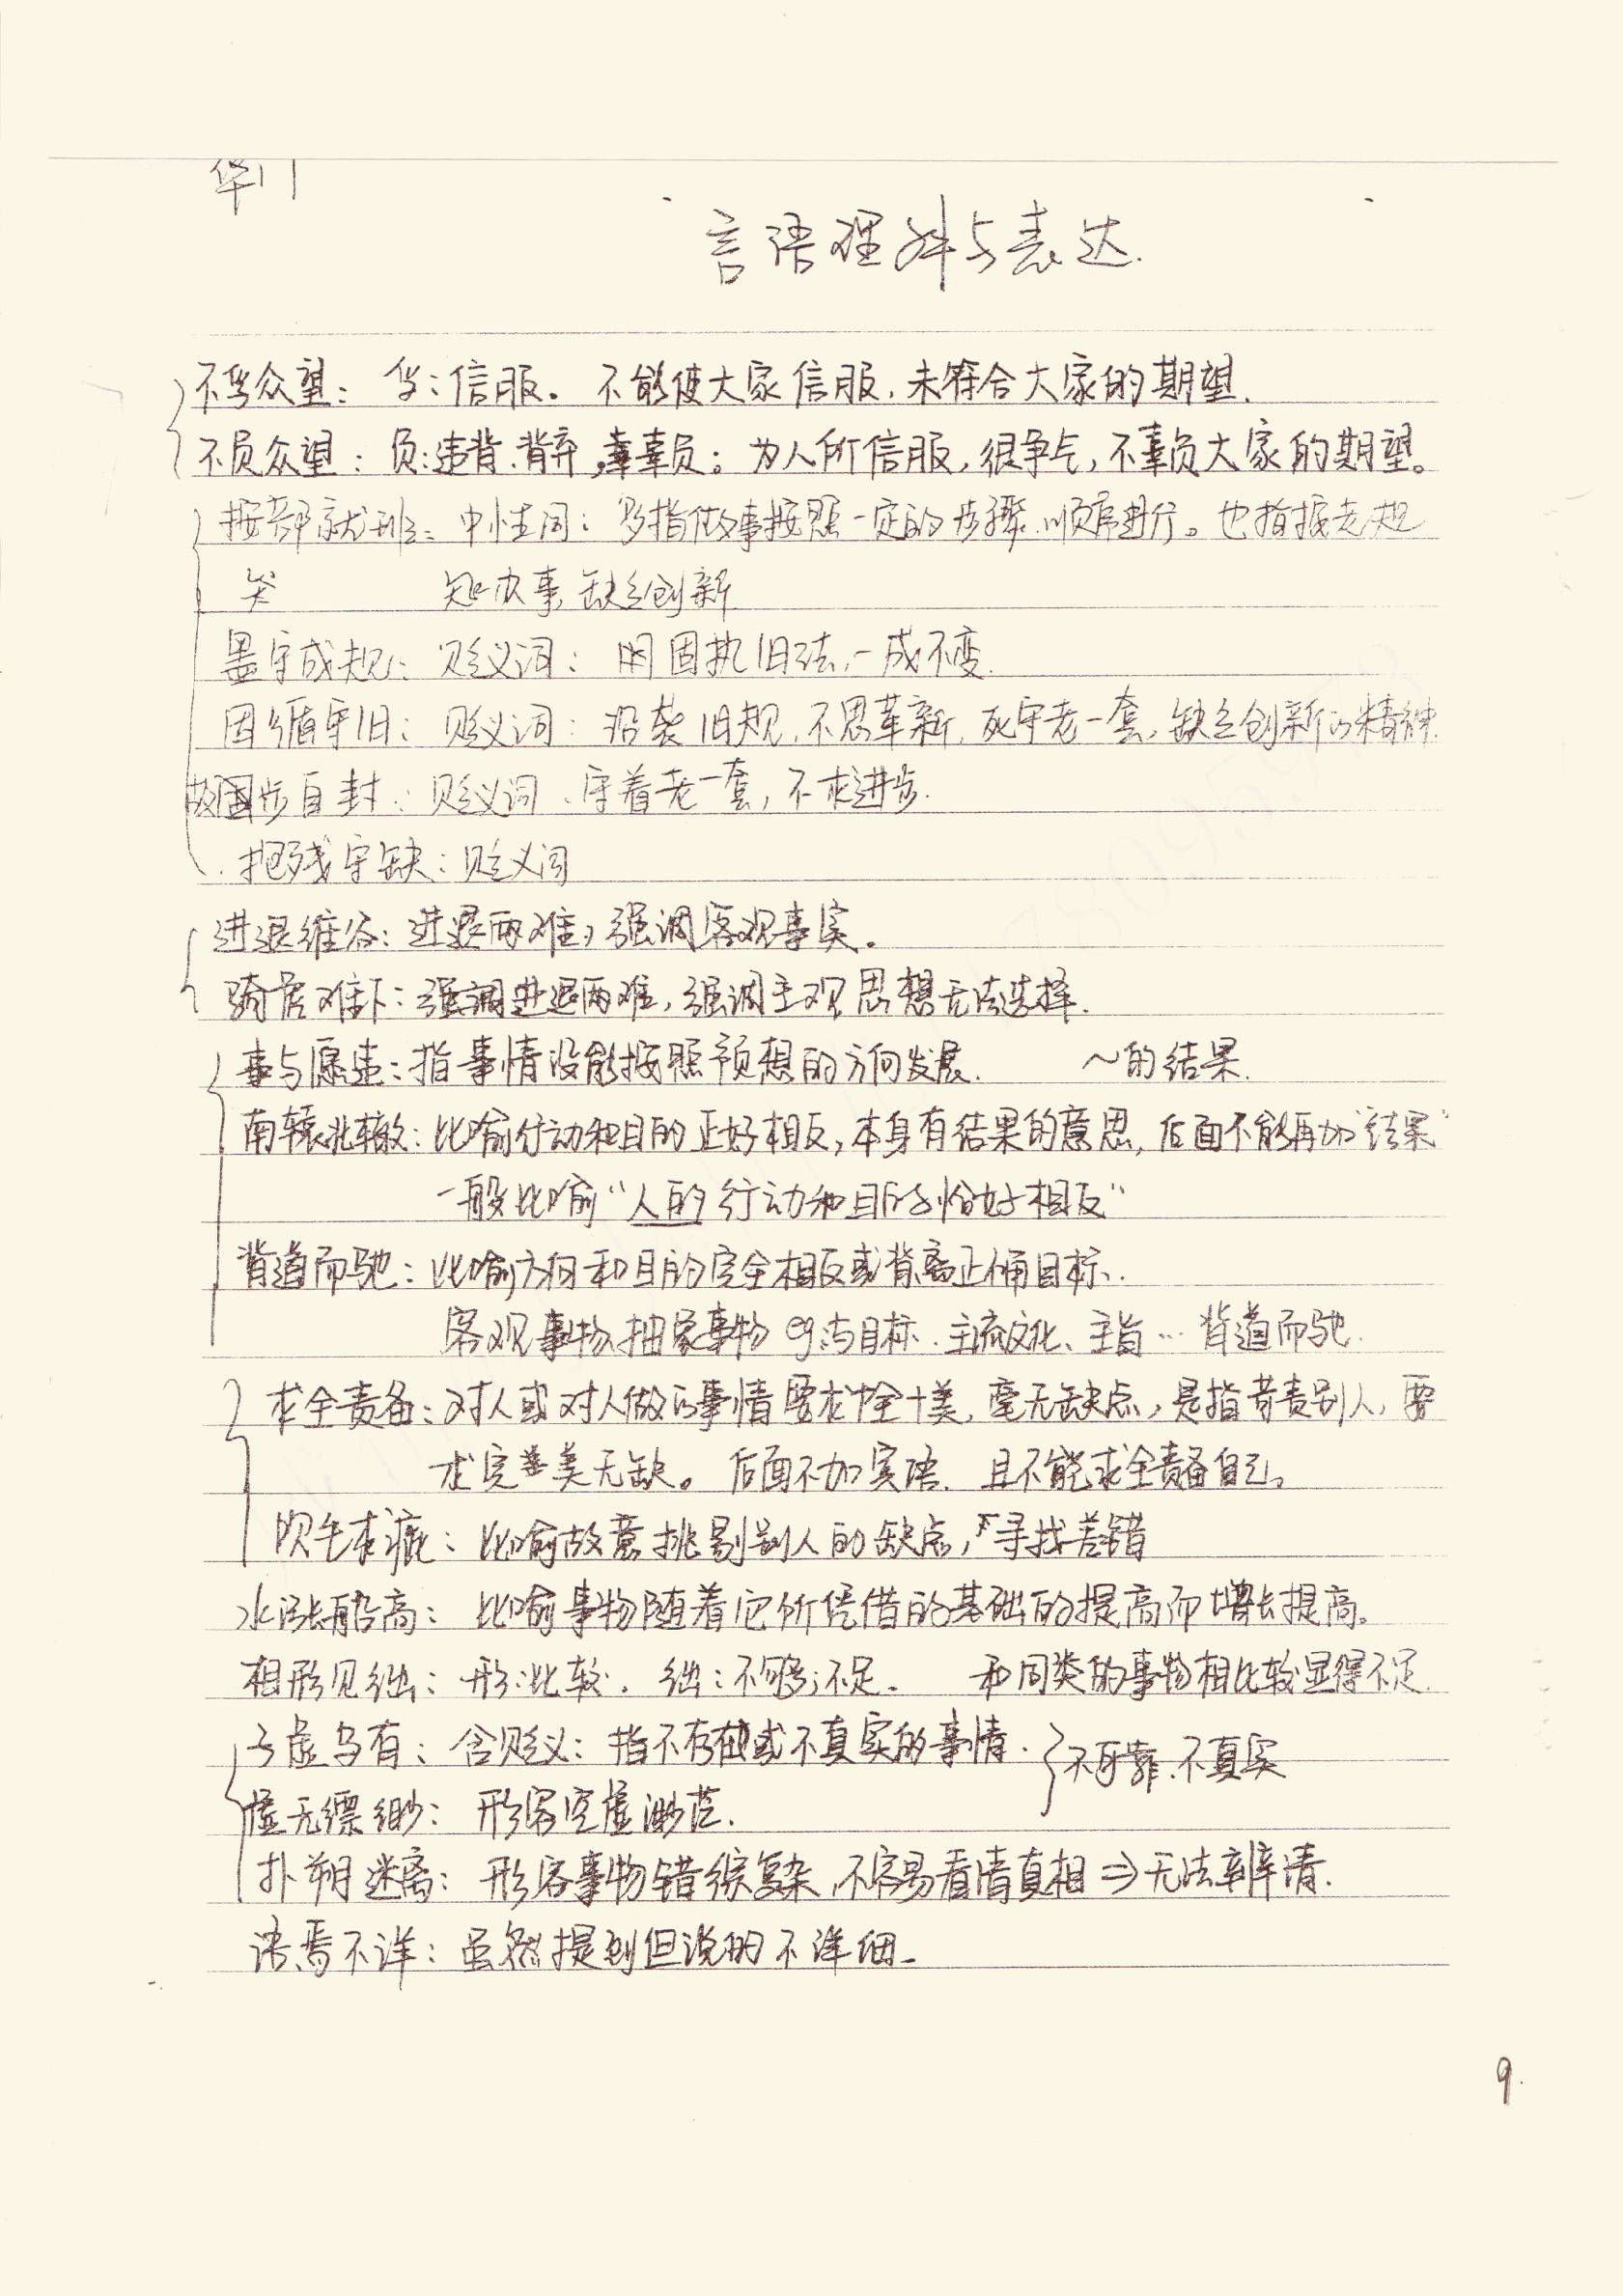 华门
言语理解与表达.
不孚众望： 孚：信服。 不能使大家信服，未符合大家的期望.
不负众望： 负：违背、背弃，辜负； 为人所信服，很争气，不辜负大家的期望。
按部就班： 中性词： 多指做事按照一定的步骤、顺序进行。也指按老规
矩办事，缺乏创新
墨守成规： 贬义词： 固执旧法，一成不变.
因循守旧： 贬义词： 沿袭旧规，不思革新，死守老一套，缺乏创新的精神.
故步自封： 贬义词、守着老一套，不求进步.
抱残守缺：贬义词
进退维谷：进退两难，强调客观事实。
骑虎难下：强调进退两难，强调主观思想无法选择.
事与愿违：指事情没能按照预想的方向发展. ～的结果.
南辕北辙：比喻行动和目的正好相反，本身有结果的意思，后面不能再加“结果”
一般比喻“人的行动和目的恰好相反”
背道而驰：比喻方向和目的完全相反或背离正确目标.
客观事物、抽象事物 eg:与目标、主流文化、主旨…背道而驰.
求全责备：对人或对人做的事情要求十全十美，毫无缺点，是指苛责别人，要
求完美无缺。后面不加宾语，且不能求全责备自己。
吹毛求疵：比喻故意挑剔别人的缺点，寻找差错
水涨船高： 比喻事物随着它所凭借的基础的提高而增长提高。
相形见绌：形：比较. 绌：不够；不足. 和同类的事物相比较显得不足.
子虚乌有：含贬义：指不存在或不真实的事情. }不可靠、不真实
虚无缥缈： 形容空虚渺茫.
扑朔迷离： 形容事物错综复杂，不容易看清真相⇒无法辨清.
语焉不详： 虽然提到但说的不详细.
9.